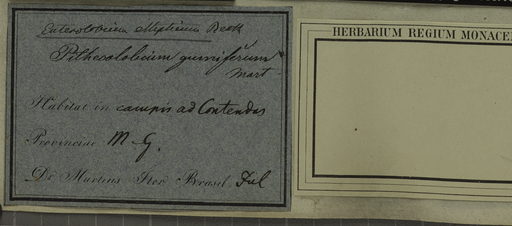 Enterolobium ellipticum Benth
Pithecolobium gumiferum
Mart
Habitat in campis ad Contendas
Provinciae M. G.
Dr. Martius Iter Brasil. Jul
HERBARIUM REGIUM MONACE